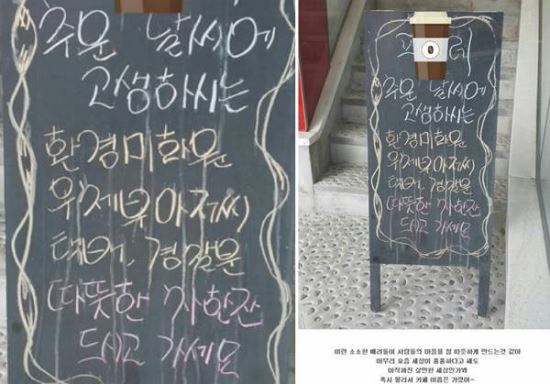 추운 날씨에
고생하시는
환경미화원
우체부아저씨
택배, 경찰분
(따뜻한 차한잔
드시고 가세요
추운 날씨에
고생하시는
환경미화원
우체부아저씨
택배, 경찰분
(따뜻한 차한잔
드시고 가세요
이런 소소한 배려들이 사람들의 마음을 따뜻하게 만드는것 같아
아무리 요즘 세상이 흉흉하다고 해도
아직까진 살만한 세상인가봐
혹시 몰라서 카페 이름은 가렸어~